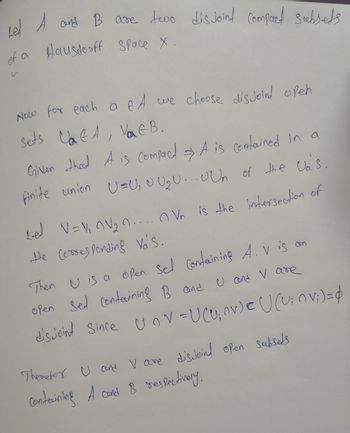 Let A and B are two disjoint compact subsets
of a Hausdorff Space X.
Now for each a ∈ A we choose disjoint open
sets Ua ∈ A, Va ∈ B.
Given that A is compact ⇒ A is contained in a
finite union U = U₁ ∪ U₂ ∪ ... ∪ Un of the Ua's.
Let V = V₁ ∩ V₂ ∩ .... ∩ Vn is the intersection of
the corresponding Va's.
Then U is a open set containing A. V is an
open set containing B and U and V are
disjoint Since U ∩ V = ∪(Ui ∩ V) ⊂ ∪(Ui ∩ Vi) = ϕ
Therefor U and V are disjoint open subsets
containing A and B respectively.